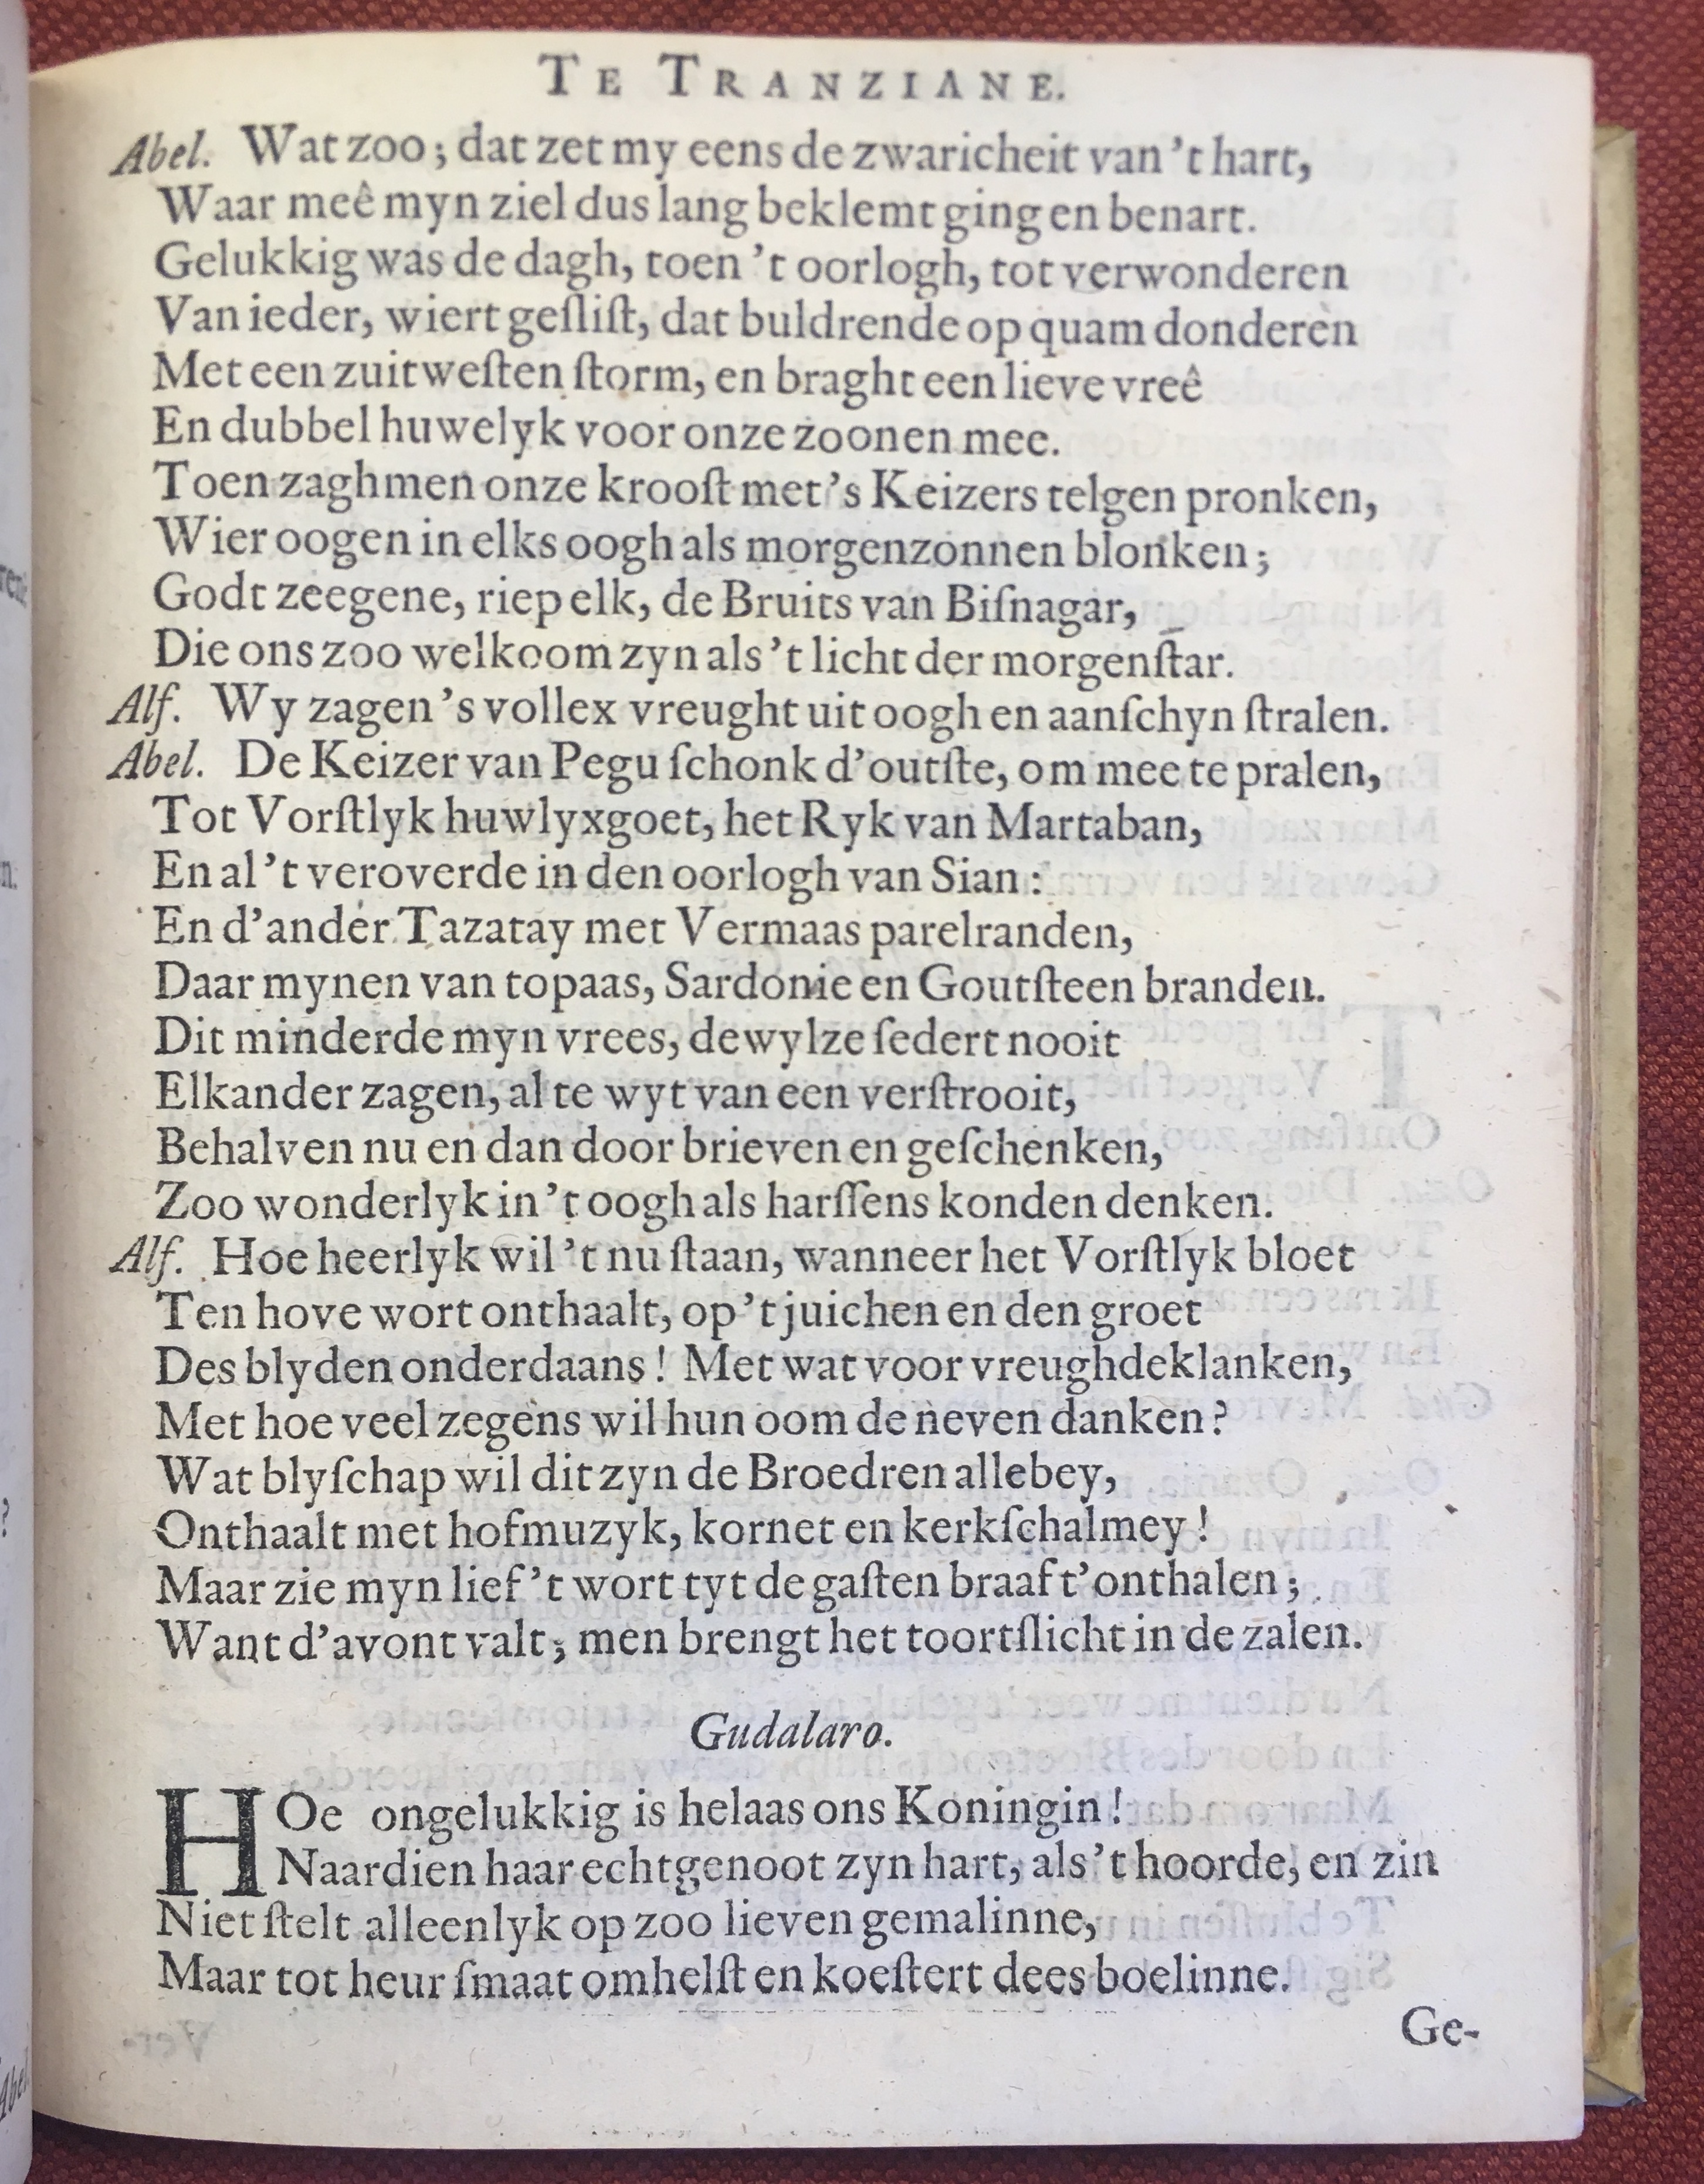 TE TRANZIANE.
Abel. Wat zoo; dat zet my eens de zwaricheit van 't hart,
Waar meê myn ziel dus lang beklemt ging en benart.
Gelukkig was de dagh, toen 't oorlogh, tot verwonderen
Van ieder, wiert geſliſt, dat buldrende op quam donderen
Met een zuitweſten ſtorm, en braght een lieve vreê
En dubbel huwelyk voor onze zoonen mee.
Toen zaghmen onze krooſt met 's Keizers telgen pronken,
Wier oogen in elks oogh als morgenzonnen blonken;
Godt zeegene, riep elk, de Bruits van Biſnagar,
Die ons zoo welkoom zyn als 't licht der morgenſtar.
Alf. Wy zagen 's vollex vreught uit oogh en aanſchyn ſtralen.
Abel. De Keizer van Pegu ſchonk d'outſte, om mee te pralen,
Tot Vorſtlyk huwlyxgoet, het Ryk van Martaban,
En al 't veroverde in den oorlogh van Sian:
En d'ander Tazatay met Vermaas parelranden,
Daar mynen van topaas, Sardonie en Goutſteen branden.
Dit minderde myn vrees, dewylze ſedert nooit
Elkander zagen, al te wyt van een verſtrooit,
Behalven nu en dan door brieven en geſchenken,
Zoo wonderlyk in 't oogh als harſſens konden denken.
Alf. Hoe heerlyk wil 't nu ſtaan, wanneer het Vorſtlyk bloet
Ten hove wort onthaalt, op 't juichen en den groet
Des blyden onderdaans! Met wat voor vreughdeklanken,
Met hoe veel zegens wil hun oom de neven danken?
Wat blyſchap wil dit zyn de Broedren allebey,
Onthaalt met hofmuzyk, kornet en kerkſchalmey!
Maar zie myn lief 't wort tyt de gaſten braaf t'onthalen;
Want d'avont valt; men brengt het toortſlicht in de zalen.
Gudalaro.
HOe ongelukkig is helaas ons Koningin!
Naardien haar echtgenoot zyn hart, als 't hoorde, en zin
Niet ſtelt alleenlyk op zoo lieven gemalinne,
Maar tot heur ſmaat omhelſt en koeſtert dees boelinne.
Ge-